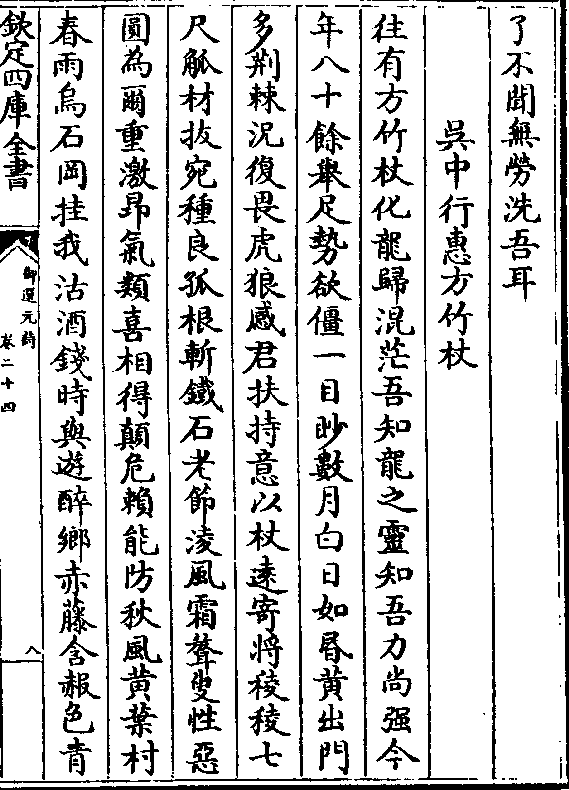 了不聞無勞洗吾耳
吳中行惠方竹杖
往有方竹杖化龍歸混茫吾知龍之靈知吾力尚强今
年八十餘舉足勢欲僵一目眇數月白日如昏黄出門
多荆棘況復畏虎狼感君扶持意以杖逺寄將稜稜七
尺觚材抜宛種良孤根斬鐵石老節淩風霜聱叟性惡
圓為爾重激昂氣類喜相得顛危賴能防秋風黄葉村
春雨烏石岡挂我沽酒錢時與遊醉鄉赤藤含赧色青
欽定四庫全書
御選元詩
卷二十四
八